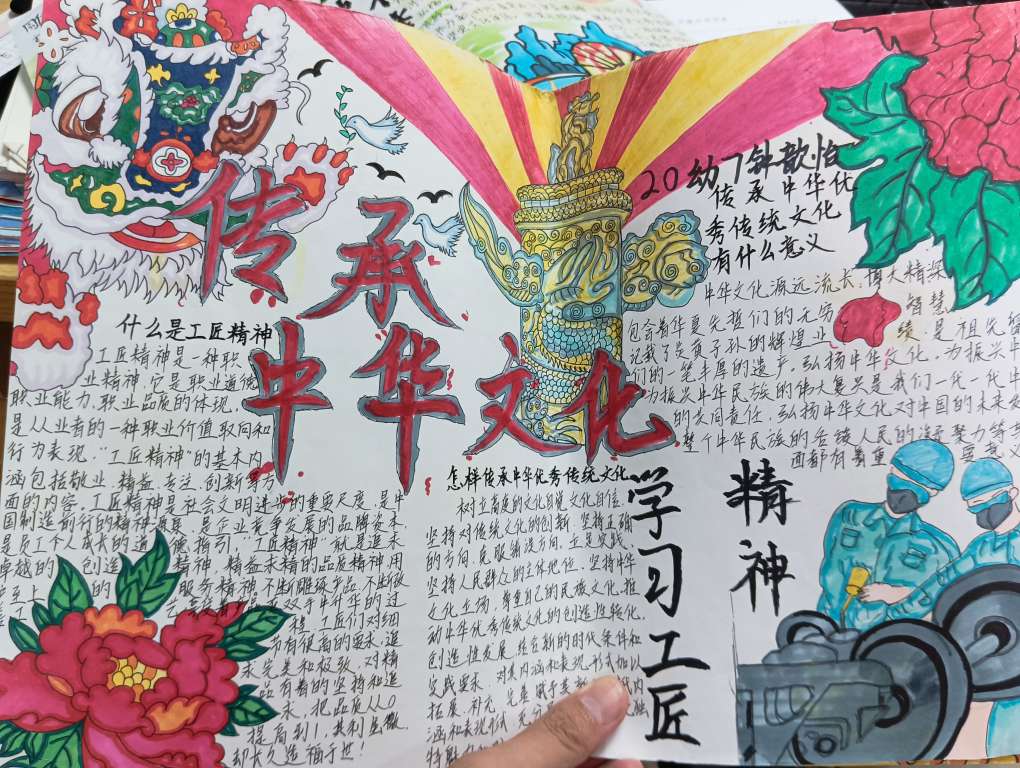 传承
中华文化
什么是工匠精神
工匠精神是一种职
业精神,它是职业道德
职业能力、职业品质的体现,
是从业者的一种职业价值取向和
行为表现。“工匠精神”的基本内
涵包括敬业、精益、专注、创新等方
面的内容。工匠精神是社会文明进步的重要尺度、是中
国制造前行的精神源泉、是企业竞争发展的品牌资本、
是员工个人成长的道德指引。“工匠精神”就是追求
卓越的 创造 精神、精益求精的品质精神、用
至上 的服务精神。不断雕琢产品,不断改
双手中升华的过
程 工匠们对细
节有很高的要求,追
求完美和极致,对精
品有着的坚持和追
求,把品质从0
提高到1,其利虽微,
却长久造福于世!
怎样传承中华优秀传统文化
树立高度的文化自觉、文化自信,
坚持对传统文化的创新,坚持正确
的方向,克服错误方向,立足实践,
坚持人民群众的主体地位,坚持中华
文化立场,尊重自己的民族文化,推
动中华优秀传统文化的创造性转化、
创造性发展,结合新的时代条件和
实践要求,对其内涵和表现形式加以
拓展、补充、完善,赋予其新 代内
涵和表现形式,充分
20幼7钟歆怡
传承中华优
秀传统文化
有什么意义
中华文化源远流长,博大精深
包含着华夏先哲们的无穷智慧
记载了炎黄子孙的辉煌业绩,是祖先留
们的一笔丰厚的遗产。弘扬中华文化,为振兴中
为振兴中华民族的伟大复兴是我们一代一代中
的共同责任,弘扬中华文化对中国的未来发
整个中华民族的延续、人民的凝聚力等其
面都有着重 要意义
学习工匠
精神